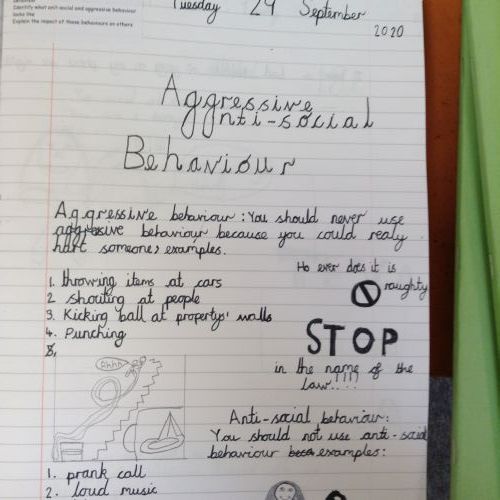 Identify what anti social and aggressive behaviour
looks like
Explain the impact of these behaviours on others
Tuesday 29 September
2020
Aggressive
Anti-social
Behaviour
Aggressive behaviour: You should never use
aggresive behaviour because you could realy
hart someone, examples.
1. throwing items at cars
2 shouting at people
3. Kicking ball at propertys' walls
4. Punching
5.
Ho ever does it is
naughty
STOP
in the name of the
law....
Ahhh
Anti-social behaviour:
You should not use anti-social
behaviour examples:
1. prank call
2. loud music